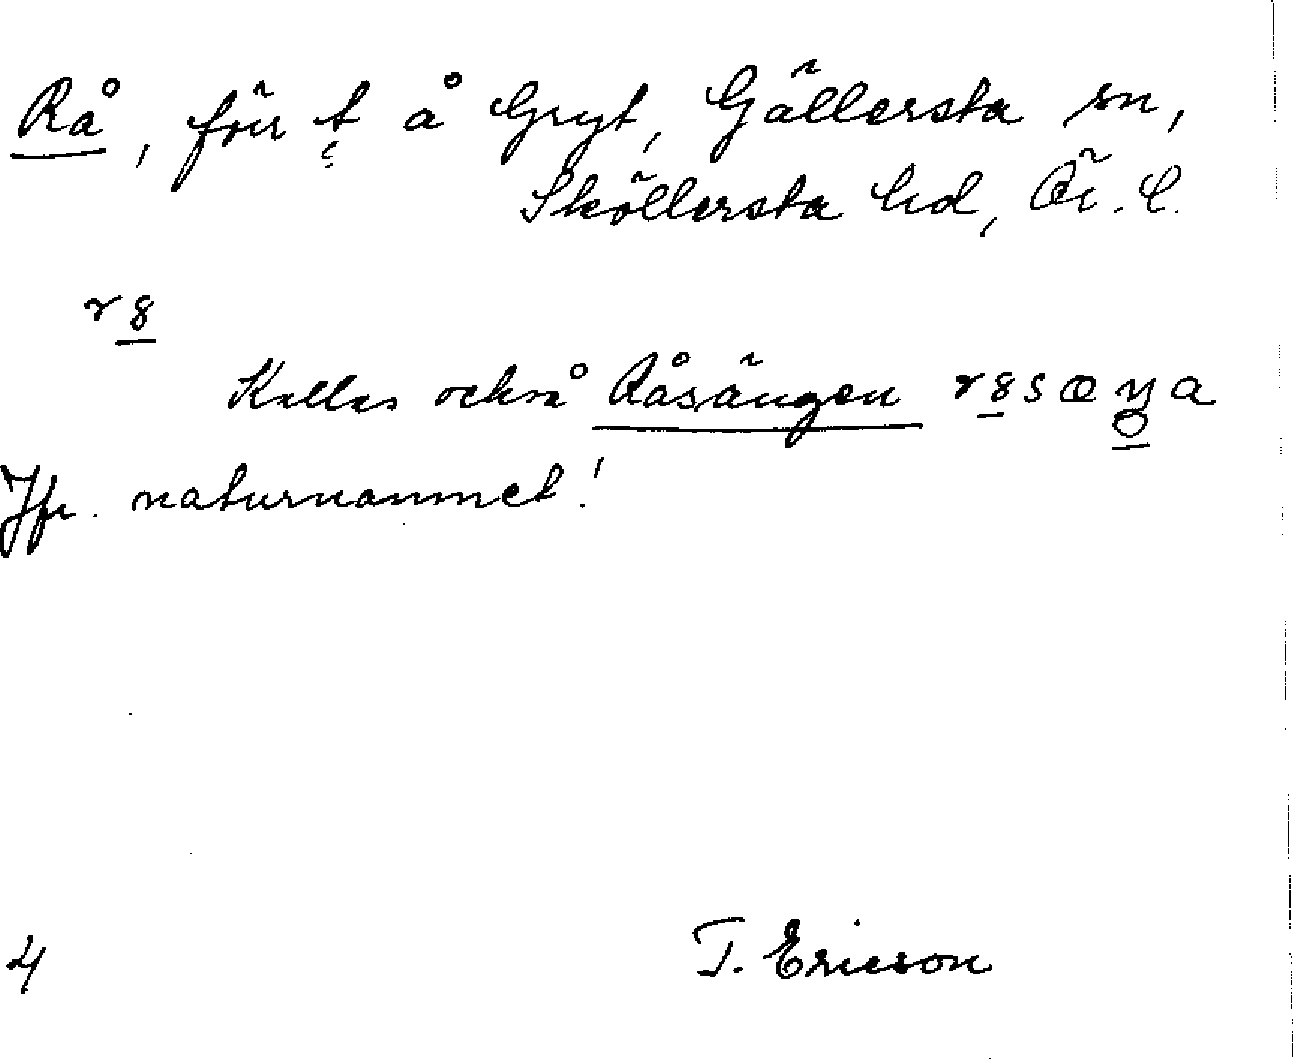 Rå, för t å Gryt, Gällersta sn,
Sköllersta hd, Ör. l.
r8
Kallas också Råsängen r8sæŋa
Jfr. naturnamnet!
4
T. Ericson